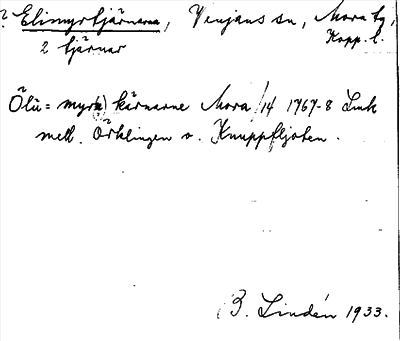 ? Elimyrtjärnarna, Venjans sn, Mora tg,
2 tjärnar Kopp. l.
Ölü = myr(n) kärnarne Mora /14 1767-8 Link
mell. Örklingen o. Knuppfljoten.
B. Lindén 1933.